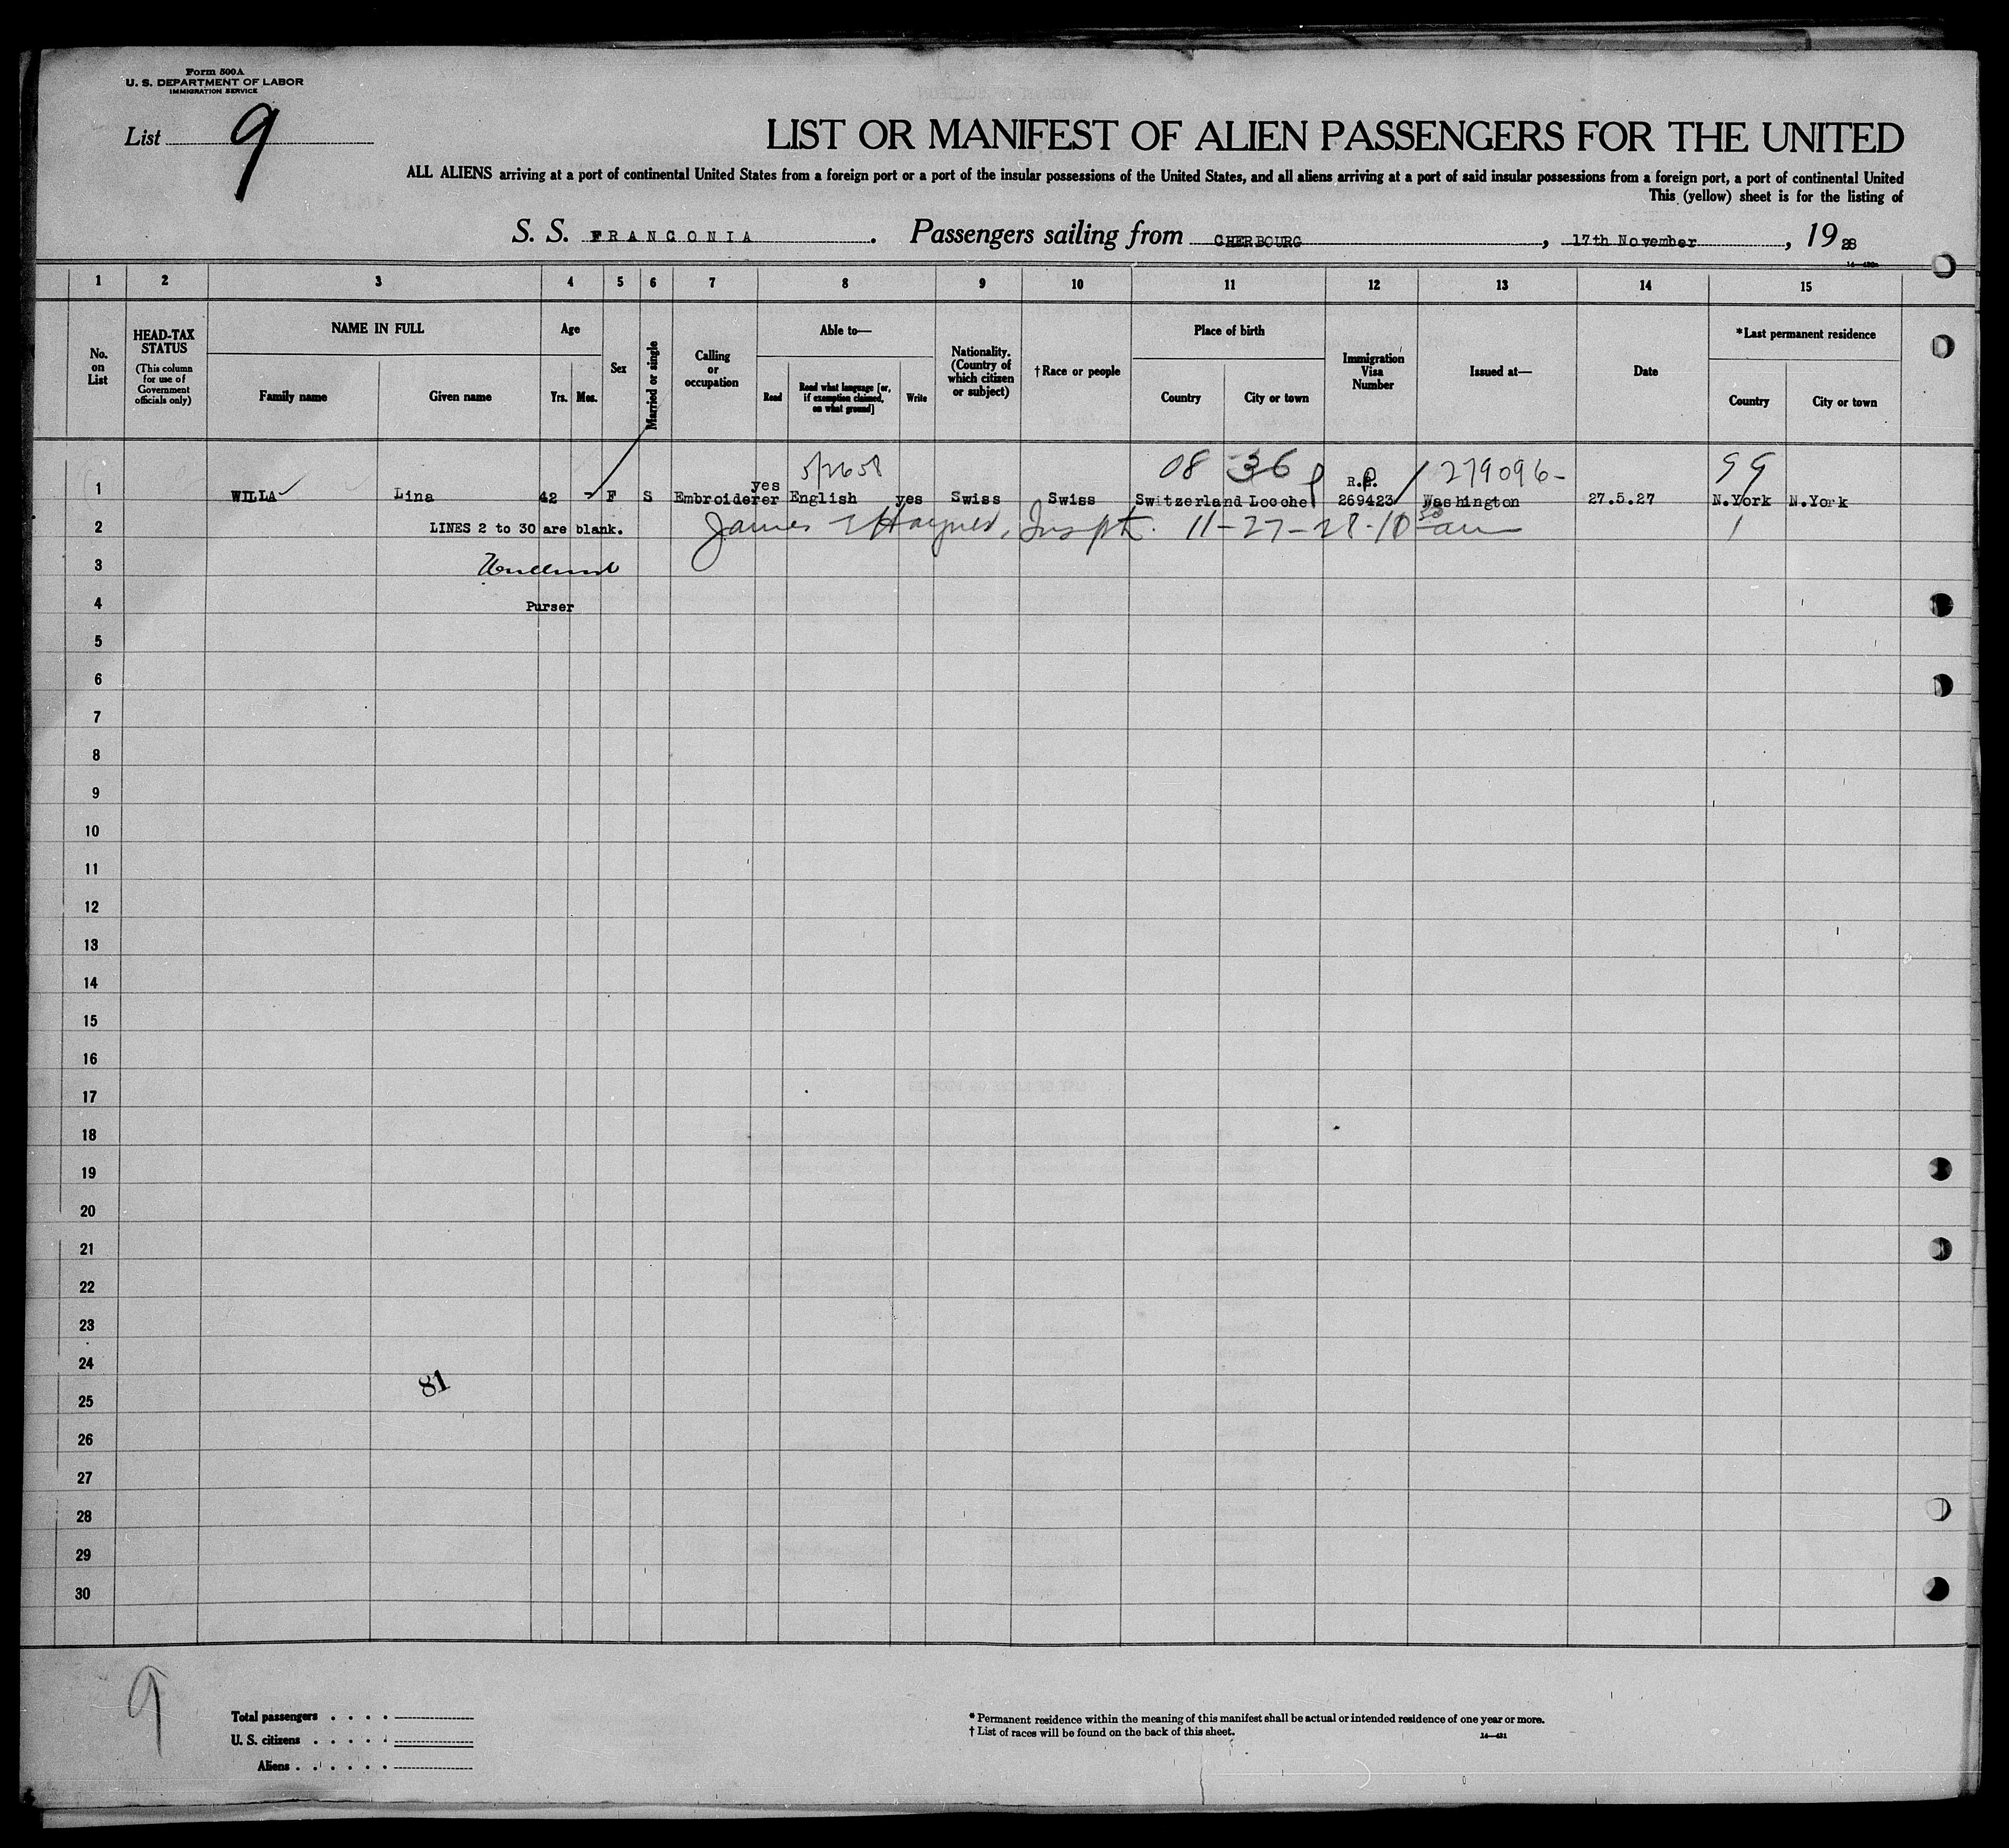 Form 500A
U. S. DEPARTMENT OF LABOR
IMMIGRATION SERVICE
List 9
LIST OR MANIFEST OF ALIEN PASSENGERS FOR THE UNITED
ALL ALIENS arriving at a port of continental United States from a foreign port or a port of the insular possessions of the United States, and all aliens arriving at a port of said insular possessions from a foreign port, a port of continental United
This (yellow) sheet is for the listing of
S. S. FRANCONIA. Passengers sailing from CHERBOURG, 17th November, 1928
1 2 3 4 5 6 7 8 9 10 11 12 13 14 15
No. on List
HEAD-TAX STATUS
(This column for use of Government officials only)
NAME IN FULL
Family name Given name
Age
Yrs. Mos.
Sex
Married or single
Calling or occupation
Able to—
Read
Read what language [or, if exemption claimed, on what ground]
Write
Nationality. (Country of which citizen or subject)
†Race or people
Place of birth
Country City or town
Immigration Visa Number
Issued at—
Date
*Last permanent residence
Country City or town
08 36 279096- 99
1 WILLA Lina 42 - F S Embroiderer yes English yes Swiss Swiss Switzerland R.P. 269423 Washington 27.5.27 N.York N.York
2 LINES 2 to 30 are blank. James Haynes, Inspt. 11-27-28-10 30 am
3
4 Purser
5
6
7
8
9
10
11
12
13
14
15
16
17
18
19
20
21
22
23
24
81
25
26
27
28
29
30
9
Total passengers
U. S. citizens
Aliens
* Permanent residence within the meaning of this manifest shall be actual or intended residence of one year or more.
† List of races will be found on the back of this sheet.
14—431